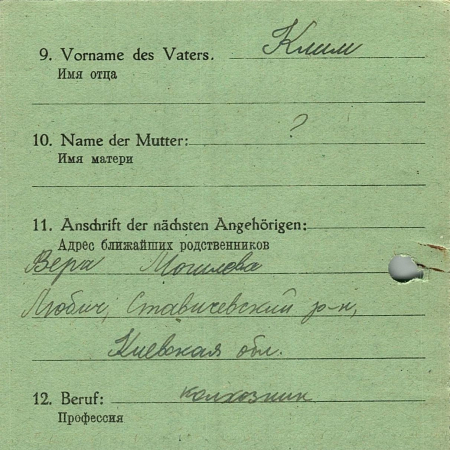 9. Vorname des Vaters. Клим
Имя отца
10. Name der Mutter: ?
Имя матери
11. Anschrift der nächsten Angehörigen:
Адрес ближайших родственников
Вера Могилова
Любич, Ставичевский р-н,
Киевская обл.
12. Beruf: колхозник
Профессия